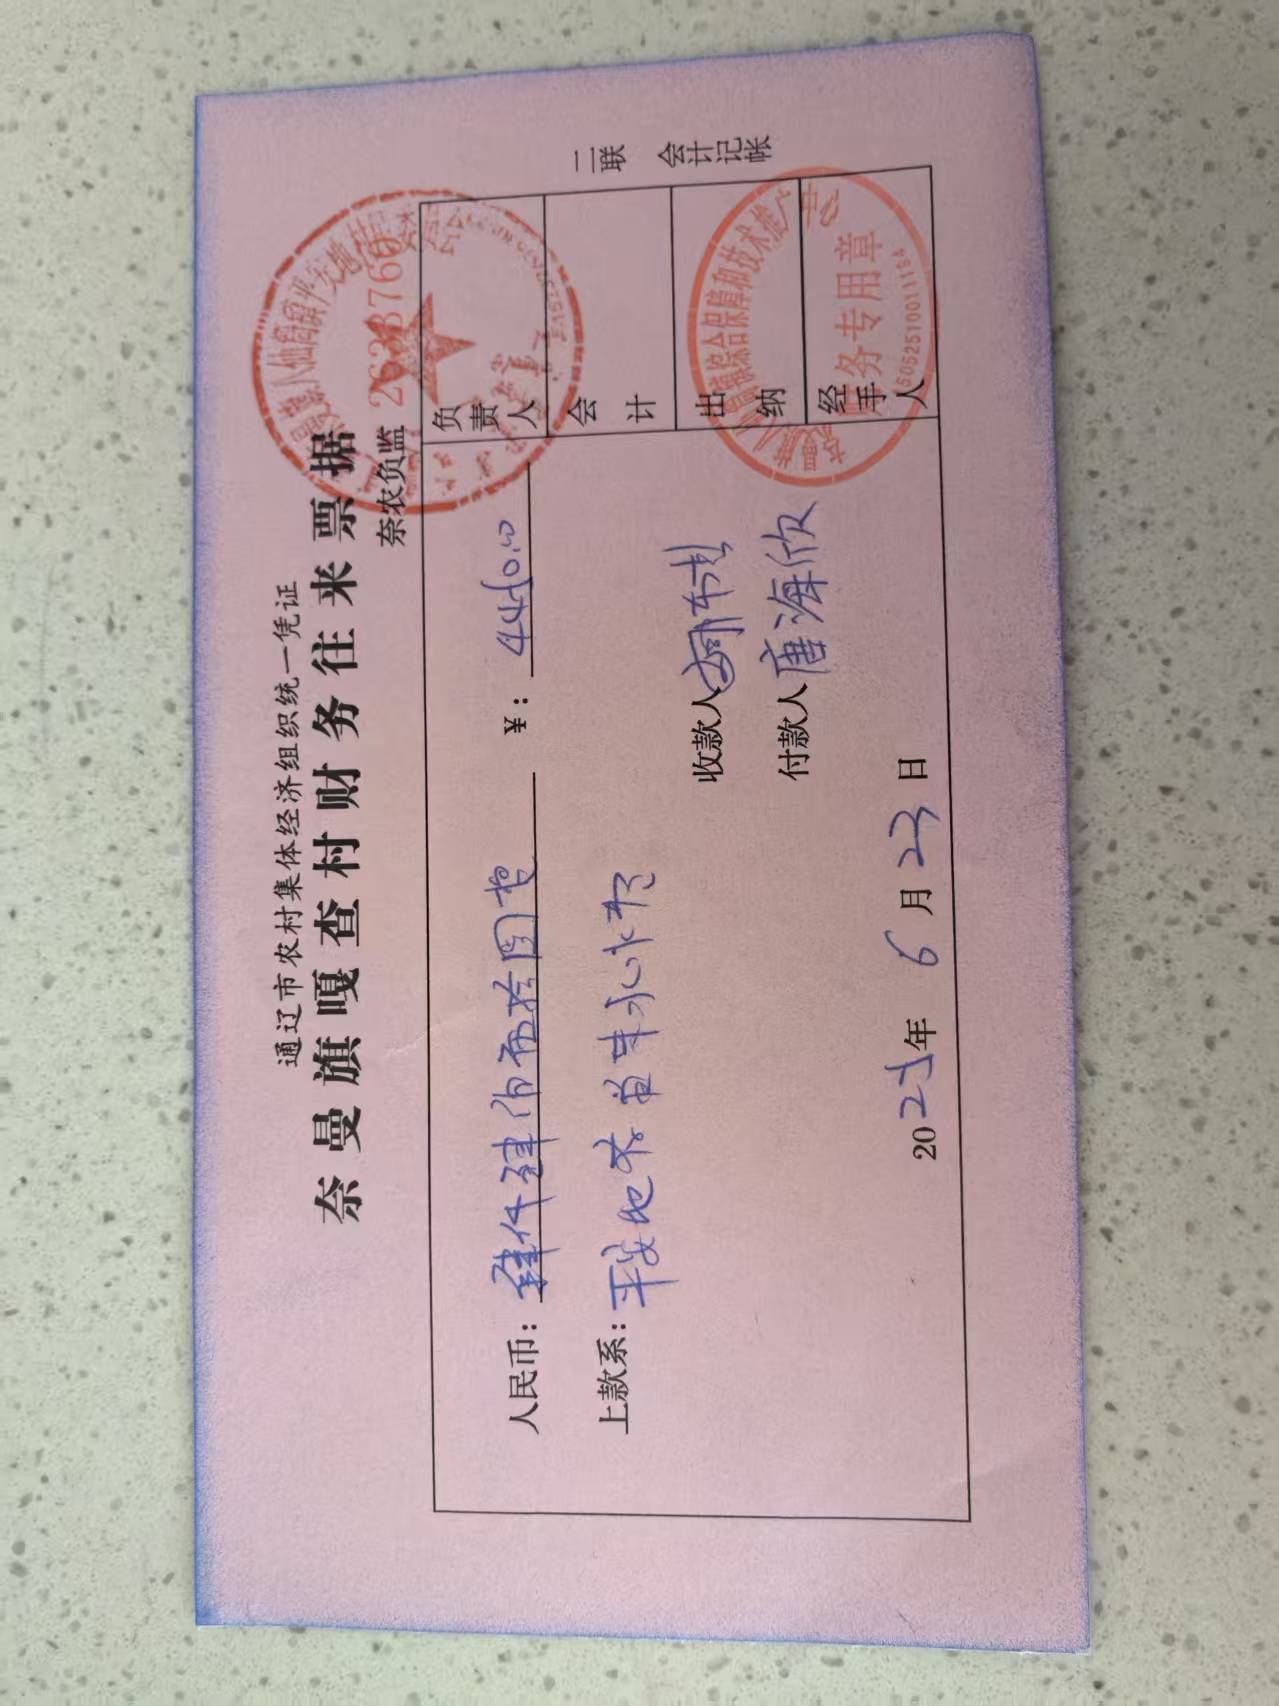 通辽市农村集体经济组织统一凭证
奈曼旗嘎查村财务往来票据
奈农负监 2638766
人民币：肆仟肆佰伍拾圆整 ￥：4450.00
上款系：平安地
收款人
付款人 唐海欣
2025年6月23日
负责人
会计
出纳
经手人
二联 会计记帐
综合保障和技术推广中心
务专用章
1505251001111164